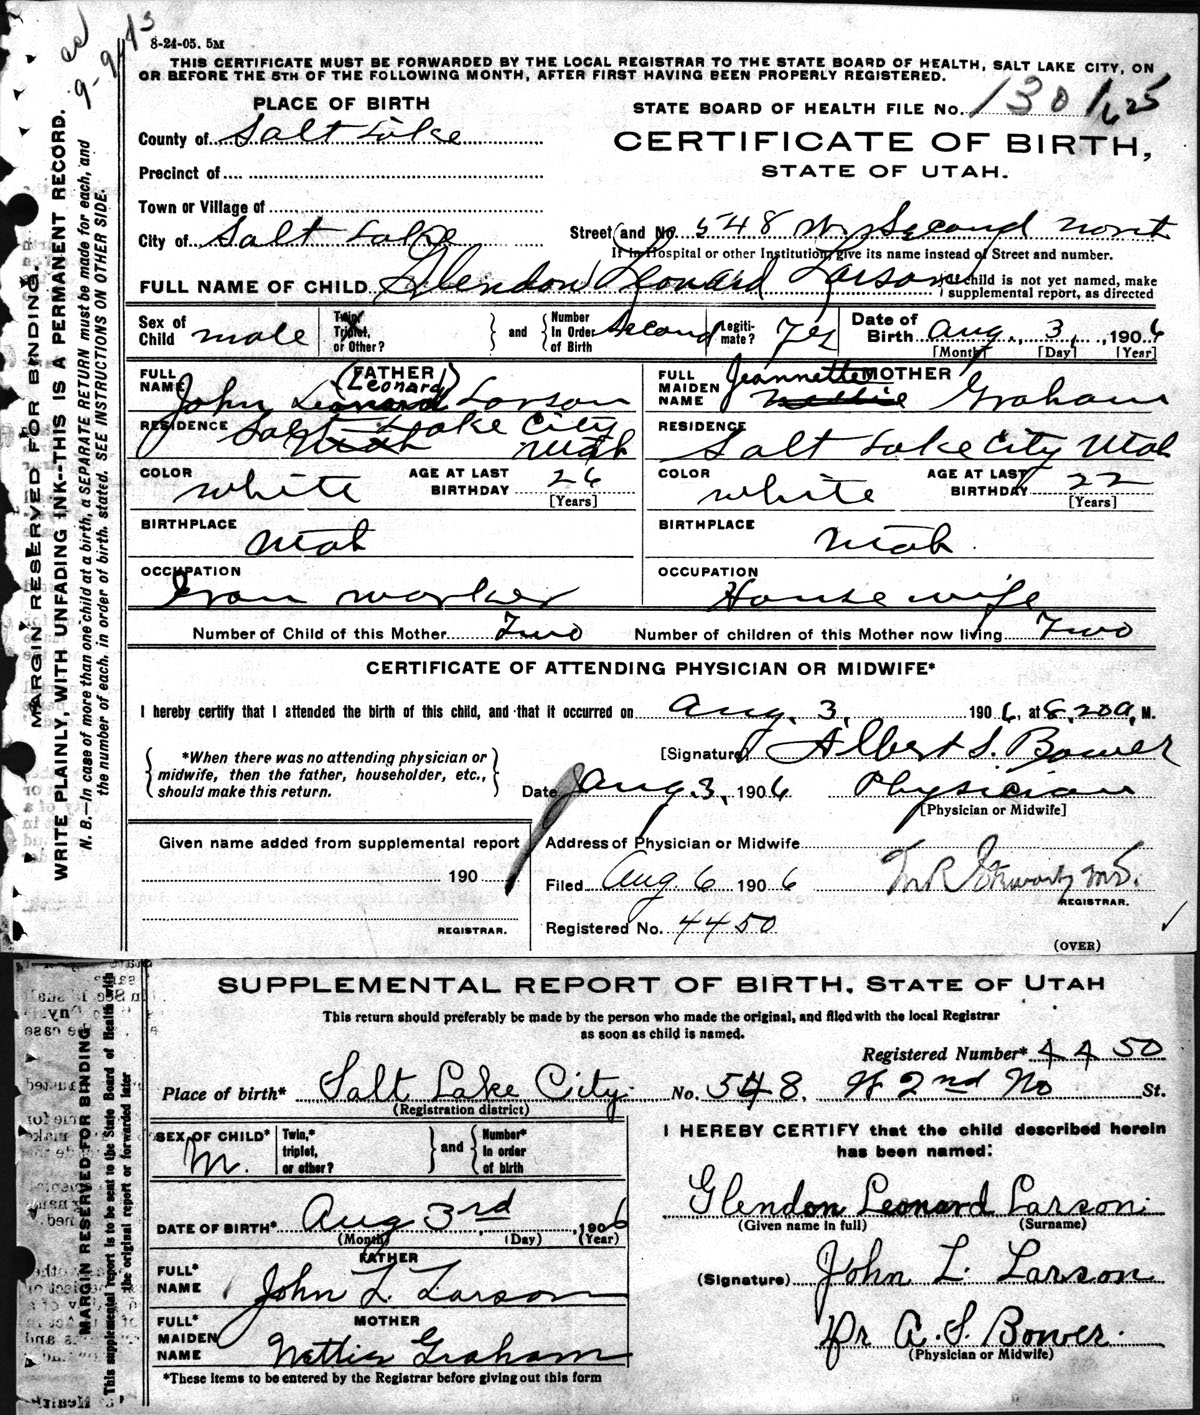 8-24-05. 5M
THIS CERTIFICATE MUST BE FORWARDED BY THE LOCAL REGISTRAR TO THE STATE BOARD OF HEALTH, SALT LAKE CITY, ON
OR BEFORE THE 5TH OF THE FOLLOWING MONTH, AFTER FIRST HAVING BEEN PROPERLY REGISTERED.
MARGIN RESERVED FOR BINDING.
WRITE PLAINLY, WITH UNFADING INK--THIS IS A PERMANENT RECORD.
N. B.—In case of more than one child at a birth, a SEPARATE RETURN must be made for each, and
the number of each, in order of birth, stated. SEE INSTRUCTIONS ON OTHER SIDE.
PLACE OF BIRTH
STATE BOARD OF HEALTH FILE No. 130 1625
County of Salt Lake
CERTIFICATE OF BIRTH,
STATE OF UTAH.
Precinct of
Town or Village of
City of Salt Lake
Street and No. 548 W. Second Nort
If in Hospital or other Institution, give its name instead of Street and number.
FULL NAME OF CHILD Glendon Leonard Larson
If child is not yet named, make
supplemental report, as directed
Sex of Child male
Twin, Triplet, or Other?
and
Number In Order of Birth Second
Legitimate? Yes
Date of Birth Aug. 3, 1906
[Month] [Day] [Year]
FATHER
FULL NAME John Leonard (Leonard) Larson
RESIDENCE Salt Lake City
Utah Utah
COLOR white
AGE AT LAST BIRTHDAY 26
[Years]
BIRTHPLACE Utah
OCCUPATION Iron worker
MOTHER
FULL MAIDEN NAME Jeannette Nettie Graham
RESIDENCE Salt Lake City Utah
COLOR white
AGE AT LAST BIRTHDAY 22
[Years]
BIRTHPLACE Utah.
OCCUPATION House wife
Number of Child of this Mother Two
Number of children of this Mother now living Two
CERTIFICATE OF ATTENDING PHYSICIAN OR MIDWIFE*
I hereby certify that I attended the birth of this child, and that it occurred on Aug. 3, 1906, at 8.20 a, M.
*When there was no attending physician or
midwife, then the father, householder, etc.,
should make this return.
[Signature] Albert S. Bower
Date Aug. 3, 1906 Physician
[Physician or Midwife]
Given name added from supplemental report
190
REGISTRAR.
Address of Physician or Midwife
Filed Aug. 6 1906
REGISTRAR.
Registered No. 4450
(OVER)
SUPPLEMENTAL REPORT OF BIRTH, STATE OF UTAH
This return should preferably be made by the person who made the original, and filed with the local Registrar
as soon as child is named.
MARGIN RESERVED FOR BINDING
This supplemental report is to be sent to the State Board of Health with
the original report or forwarded later
Registered Number* 4450
Place of birth* Salt Lake City. No. 548. W 2nd No St.
(Registration district)
SEX OF CHILD* M.
Twin,* triplet, or other?
and
Number* In order of birth
DATE OF BIRTH* Aug 3rd, 1906
(Month) (Day) (Year)
FATHER
FULL* NAME John L. Larson
MOTHER
FULL* MAIDEN NAME Nettie Graham
*These items to be entered by the Registrar before giving out this form
I HEREBY CERTIFY that the child described herein
has been named:
Glendon Leonard Larson.
(Given name in full) (Surname)
(Signature) John L. Larson
Dr A. S. Bower.
(Physician or Midwife)